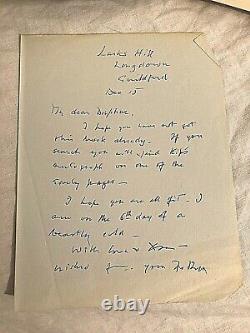 Larks Hill
Longdown
Guildford
Dec 15
My dear Daphne,
I hope you have not got
this book already. If you
search you will find Kip's
autograph on one of the
early pages -
I hope you are all fit. I
am on the 6th day of a
beastly cold -
With love & Xmas
wishes from your